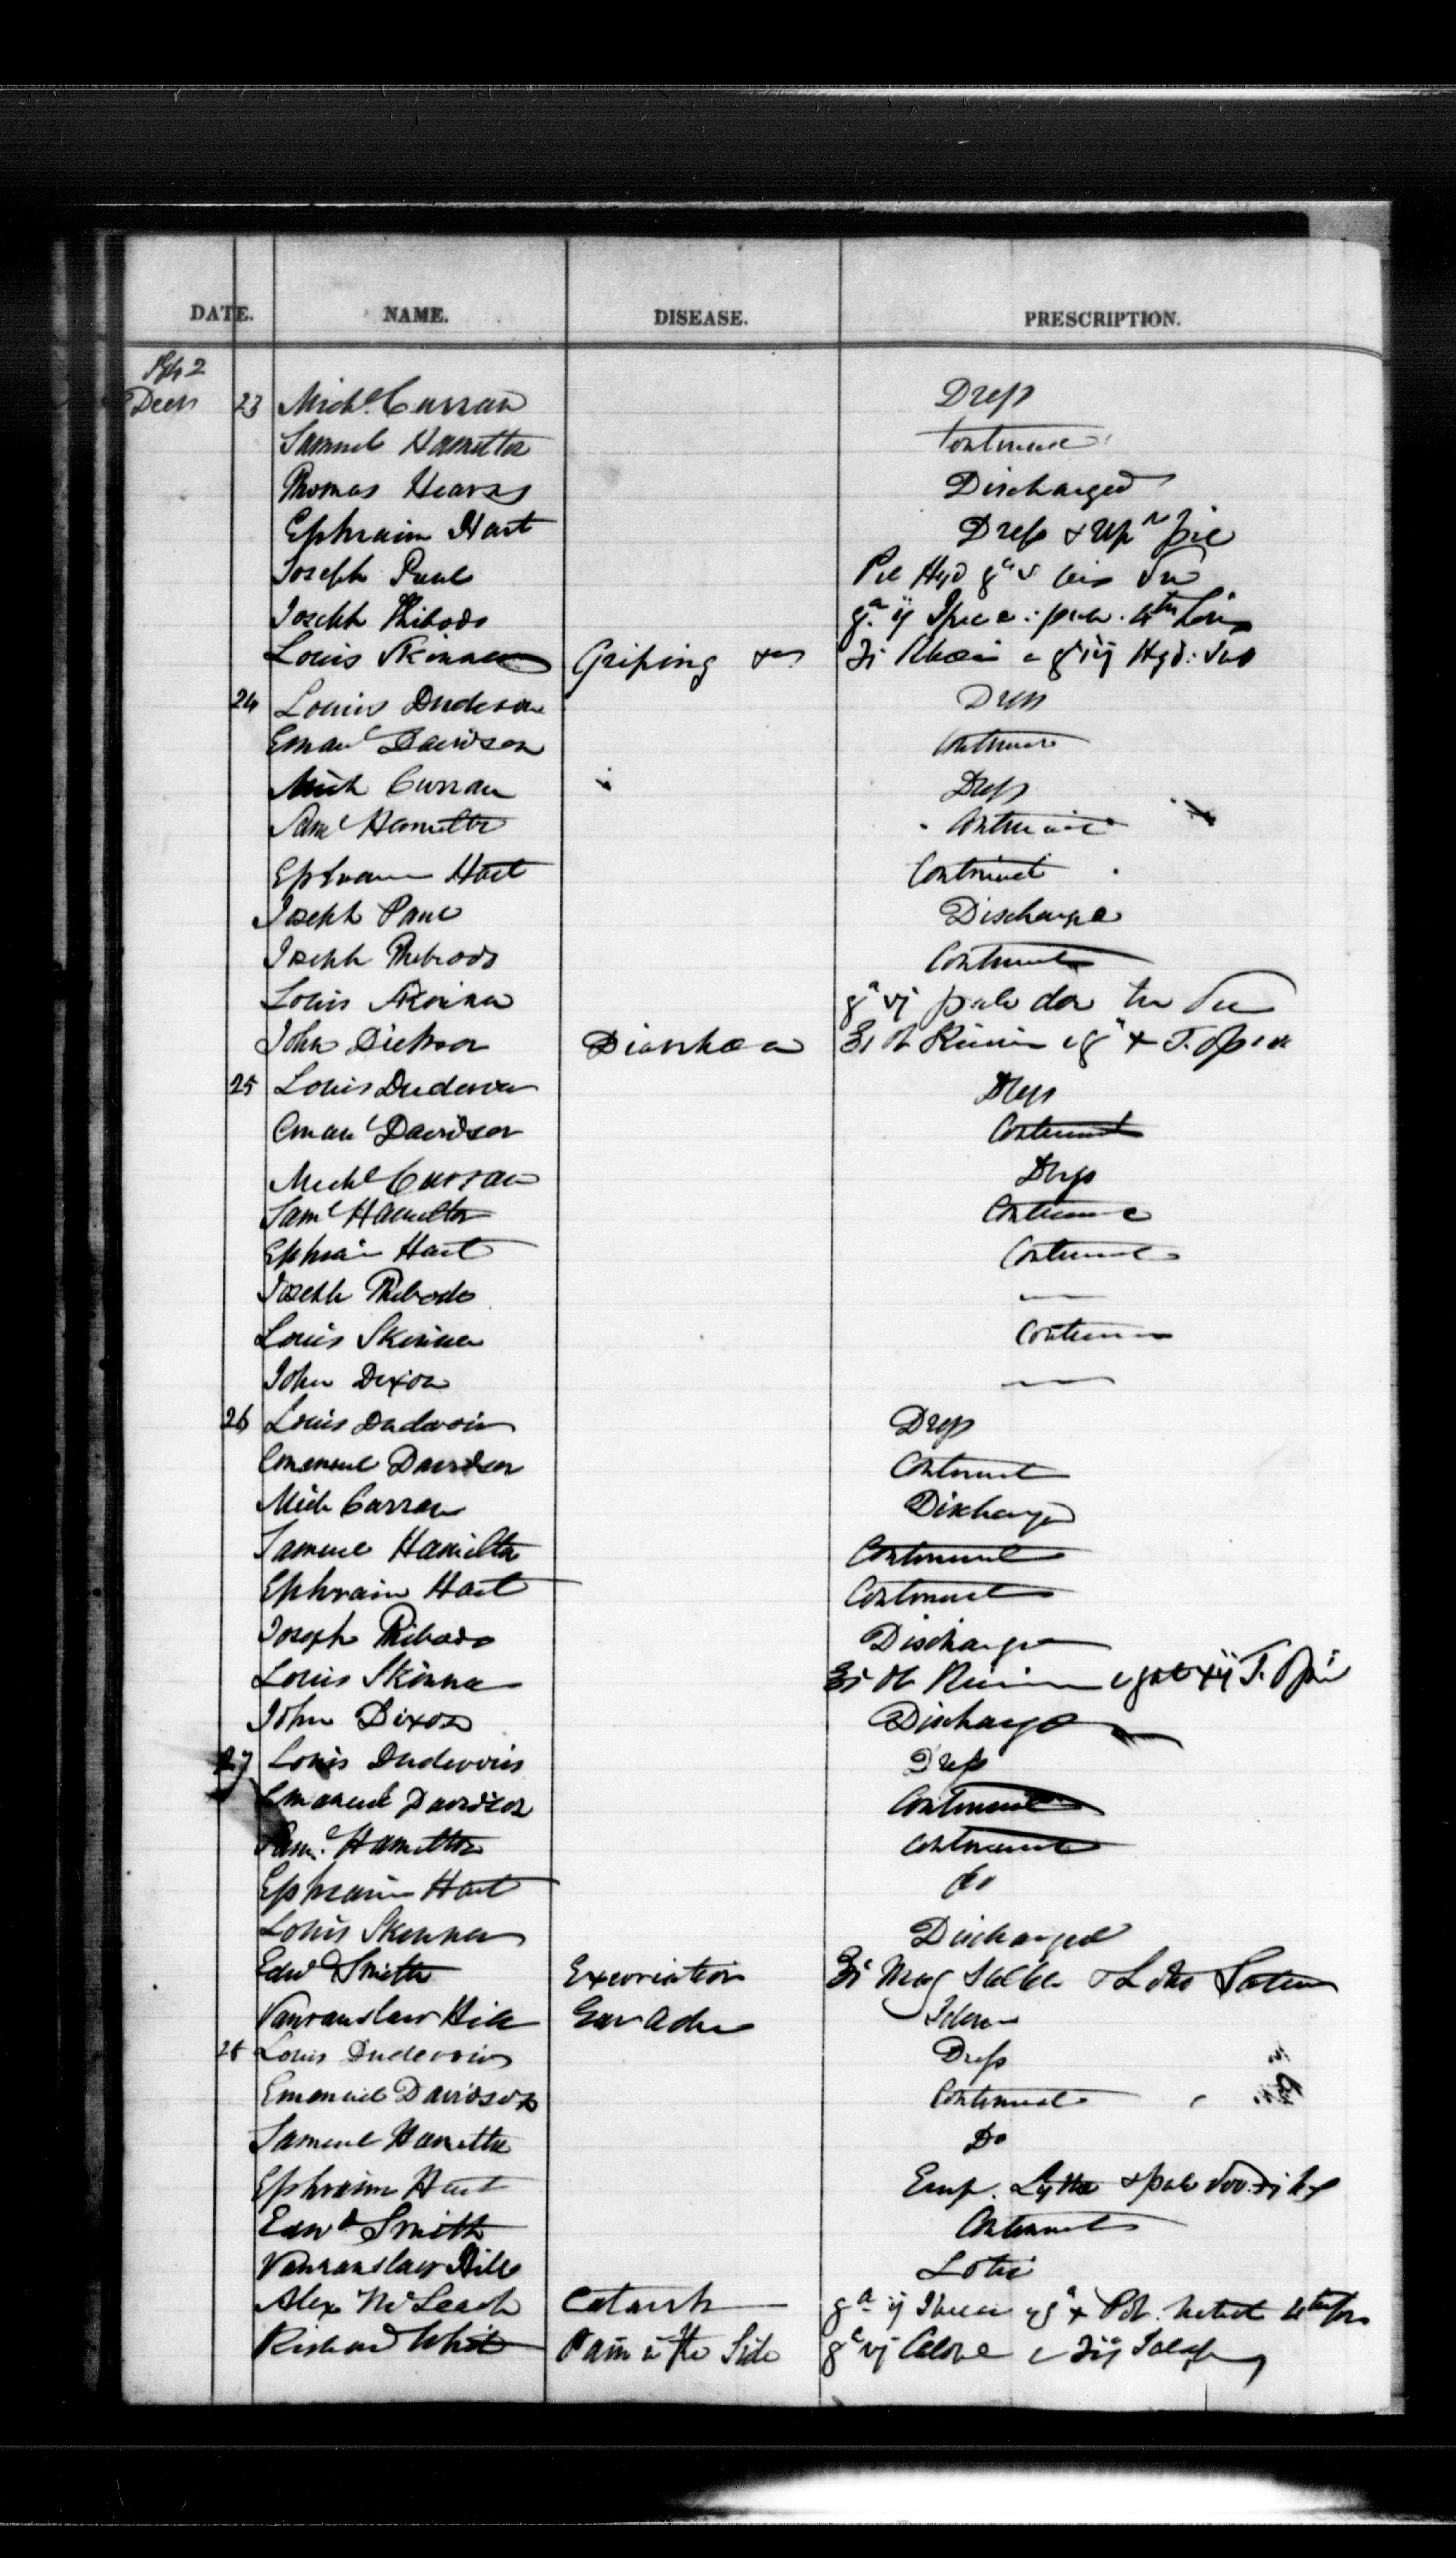 DATE. NAME. DISEASE. PRESCRIPTION.
Decr 23 Michl. Curran Dress
Samuel Hamilton Continue
Thomas Hearns Discharged
Ephraim Hart Dress & Apn pil
Joseph Paul Pil Hyd gr v bis
Joseph Thibodo gr ij Ipeca: pulv. 4tr
Louis Skinner Griping Zi Rhæi c gr iij Hyd:
24 Louis Dudevoir Dress
Emanl Davidson Continue
Mich Curran Dress
Saml Hamilton Continue
Ephraim Hart Continued
Joseph Paul Discharge
Joseph Thibodo Continued
Louis Skinner gr vj pulv dov
John Dickson Diarrhœa Ol Ricini c gr x T. Opii
25 Louis Dudevoir Dress
Emanl Davidson Continued
Michl Curran Dress
Saml Hamilton Continue
Ephraim Hart Continued
Joseph Thibodo —
Louis Skinner Continue
John Dixon —
26 Louis Dudevoir Dress
Emanuel Davidson Continued
Mich Curran Discharged
Samuel Hamilton Continued
Ephraim Hart Continued
Joseph Thibodo Discharge
Louis Skinner Ol Ricini c gtt xij T. Opii
John Dixon Discharge
27 Louis Dudevoir Dress
Emanuel Davidson Continued
Saml. Hamilton Continued
Ephraim Hart do
Louis Skinner Discharged
Edwd Smith Excoriation Mag Sulph & Lotio Saturn
Vanranslaer Hill Ear Ache Idem
28 Louis Dudevoir Dress
Emanuel Davidson Continued
Samuel Hamilton Do
Ephraim Hart Emp. Lyttæ & pulv dov.
Edwd Smith Continued
Vanranslaer Hill Lotio
Alex McLeach Catarrh gr ij Ipecac c gr x Pot. nitrat
Richard White Pain in the Side gr vj Calomel c Jalap